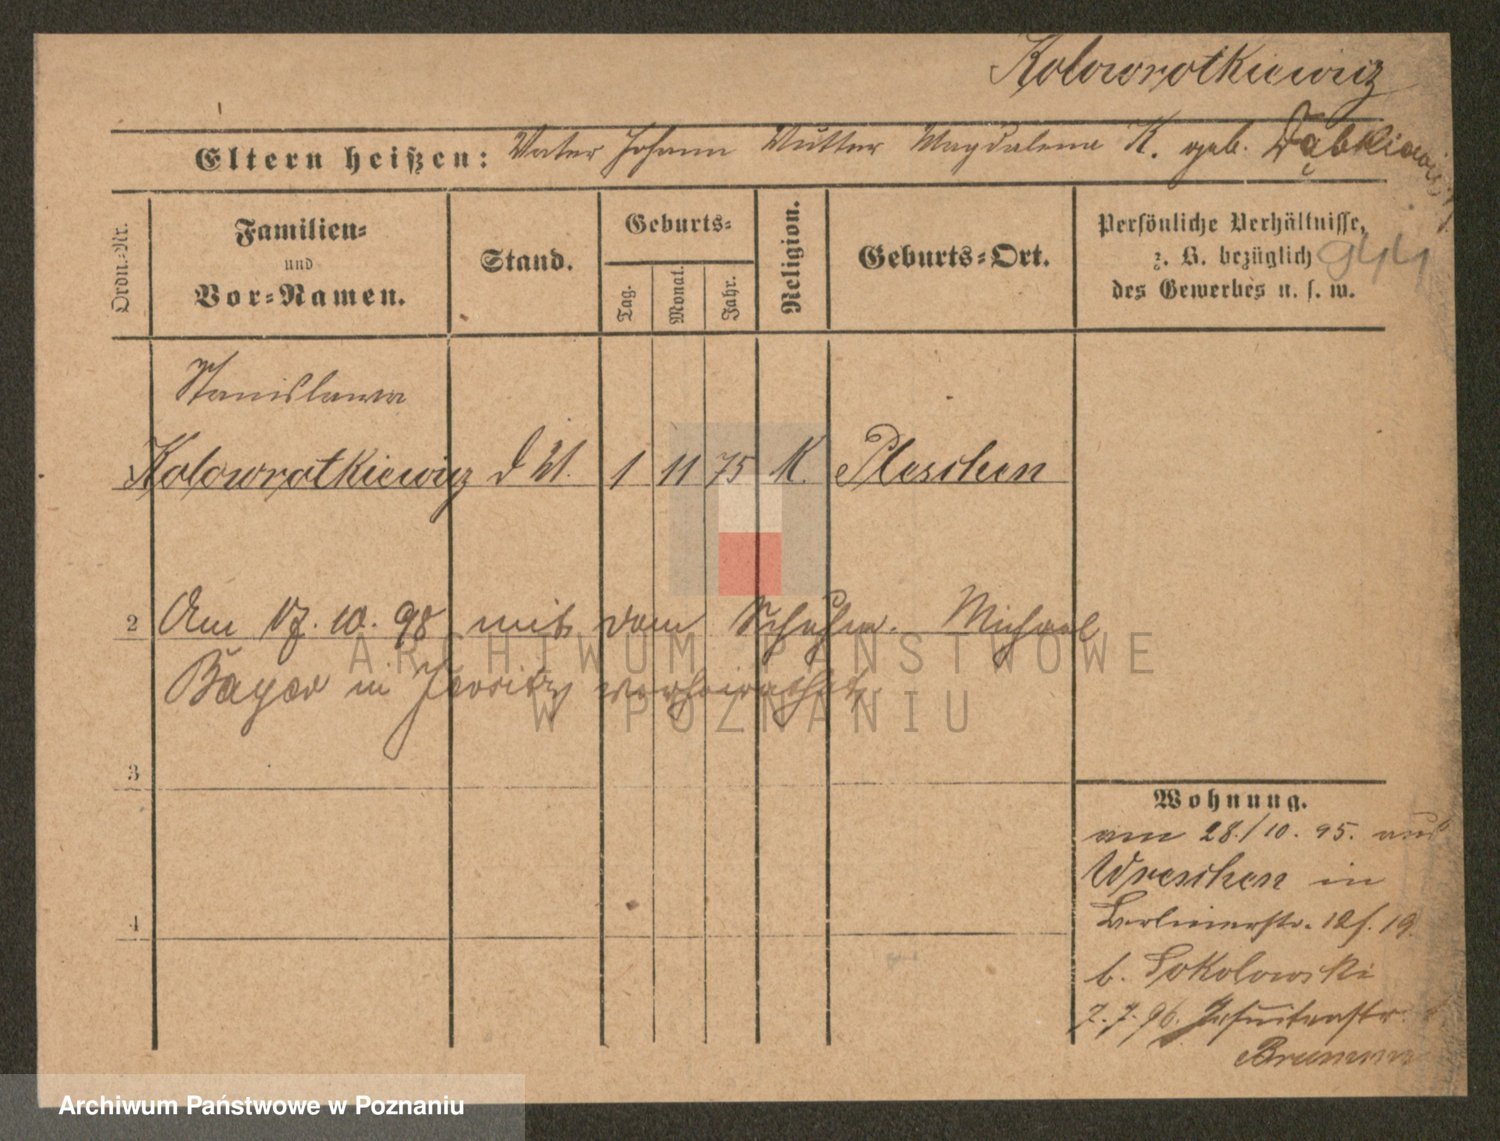 Kolowrotkiewicz
Eltern heißen: Vater Johann Mutter Magdalena K. geb. Dąbkiewicz
Ordn.-Nr.
Familien-
und
Vor-Namen.
Stand.
Geburts-
Tag.
Monat.
Jahr.
Religion.
Geburts-Ort.
Persönliche Verhältnisse,
z. B. bezüglich
des Gewerbes u. s. w.
944
Stanislawa
Kolowrotkiewicz d M. 1 11 75 K. Pleschen
2 Am 17. 10. 98 mit dem Schuhm. Michael
Bayer in verheirathet
3
4
Wohnung.
am 28./10. 95. aus
Wreschen in
Berlinerstr. 19
b. Sokolowski
2. 7. 96. Jesuitenstr.
ARCHIWUM PAŃSTWOWE
W POZNANIU
Archiwum Państwowe w Poznaniu